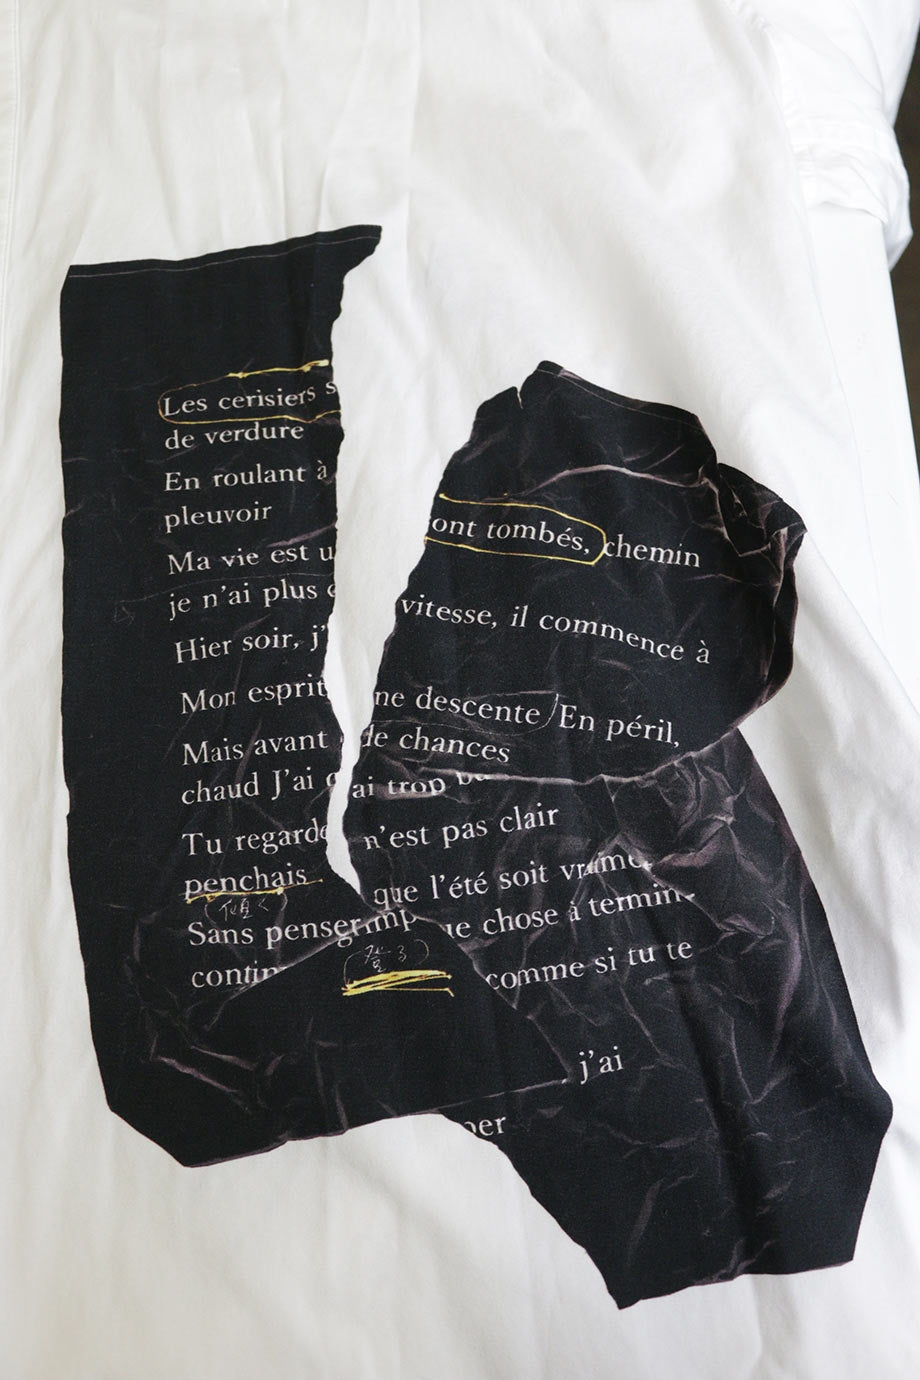 Les cerisiers s
de verdure
En roulant à
pleuvoir
Ma vie est u
je n'ai plus
Hier soir, j'
Mon esprit
Mais avant
chaud J'ai
Tu regarde
penchais
(傾く)
Sans penser
contin
ont tombés, chemin
vitesse, il commence à
ne descente En péril,
de chances
ai trop
n'est pas clair
que l'été soit vraime
ue chose à termin
comme si tu te
j'ai
per